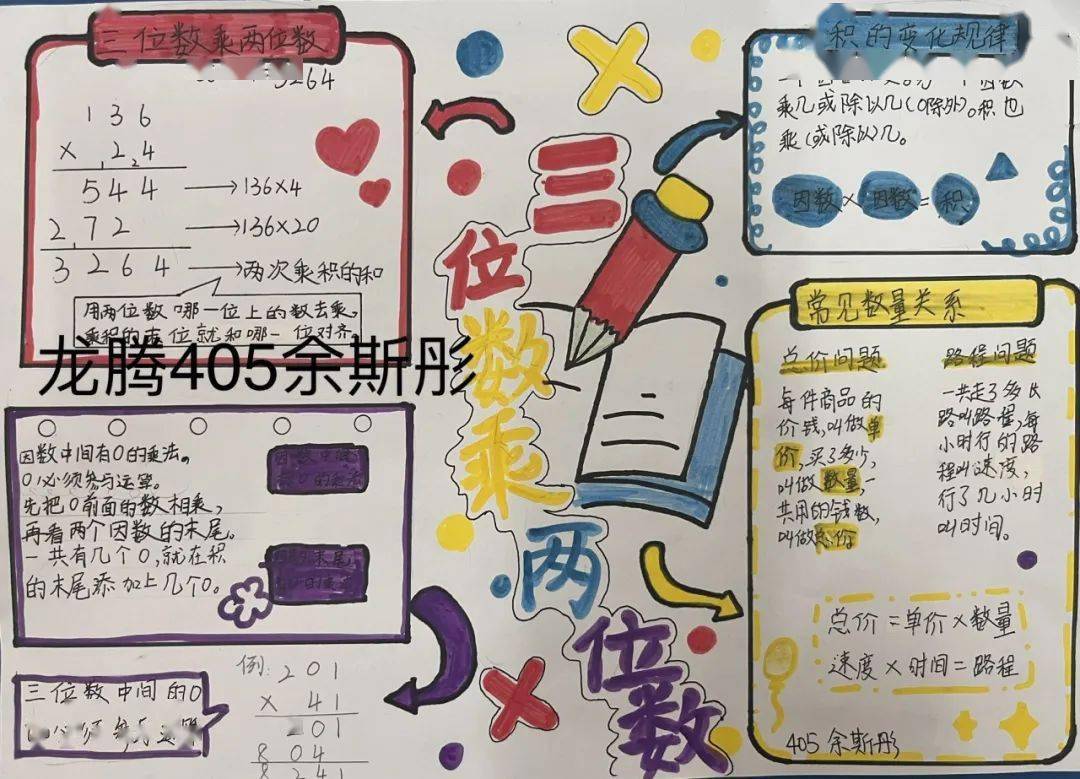 三位数乘两位数
3264
136
× 24
544 → 136×4
272 → 136×20
3264 → 两次乘积的和
用两位数哪一位上的数去乘,
乘积的末位就和哪一位对齐。
龙腾405余斯彤
因数中间有0的乘法。
0必须参与运算。
先把0前面的数相乘,
再看两个因数的末尾。
一共有几个0,就在积
的末尾添加上几个0。
三位数中间的0
例: 201
× 41
201
804
8241
三位数乘两位数
积的变化规律
乘几或除以几(0除外)。积也
乘(或除以)几。
因数×因数=积
常见数量关系
总价问题
每件商品的
价钱,叫做单
价,买了多少,
叫做数量,一
共用的钱数,
叫做总价
路程问题
一共走了多长
路叫路程,每
小时行的路
程叫速度,
行了几小时
叫时间。
总价=单价×数量
速度×时间=路程
405余斯彤